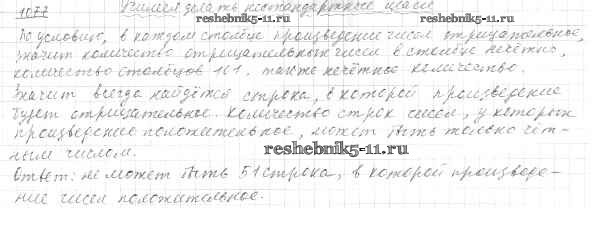 1077 Учимся решать нестандартные задачи
reshebnik5-11.ru
По условию, в каждом столбце произведение чисел отрицательное,
значит количество отрицательных чисел в столбце нечётно,
количество столбцов 101. также нечётное количество.
Значит всегда найдётся строка, в которой произведение
будет отрицательное. Количество строк чисел, у которых
произведение положительное, может быть только чёт-
ным числом.
reshebnik5-11.ru
Ответ: не может быть 51 строка, в которой произведе-
ние чисел положительное.